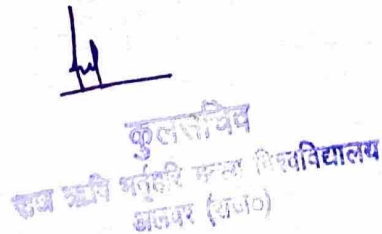 कुलसचिव
राज ऋषि भर्तृहरि मत्स्य विश्वविद्यालय
अलवर (राज०)